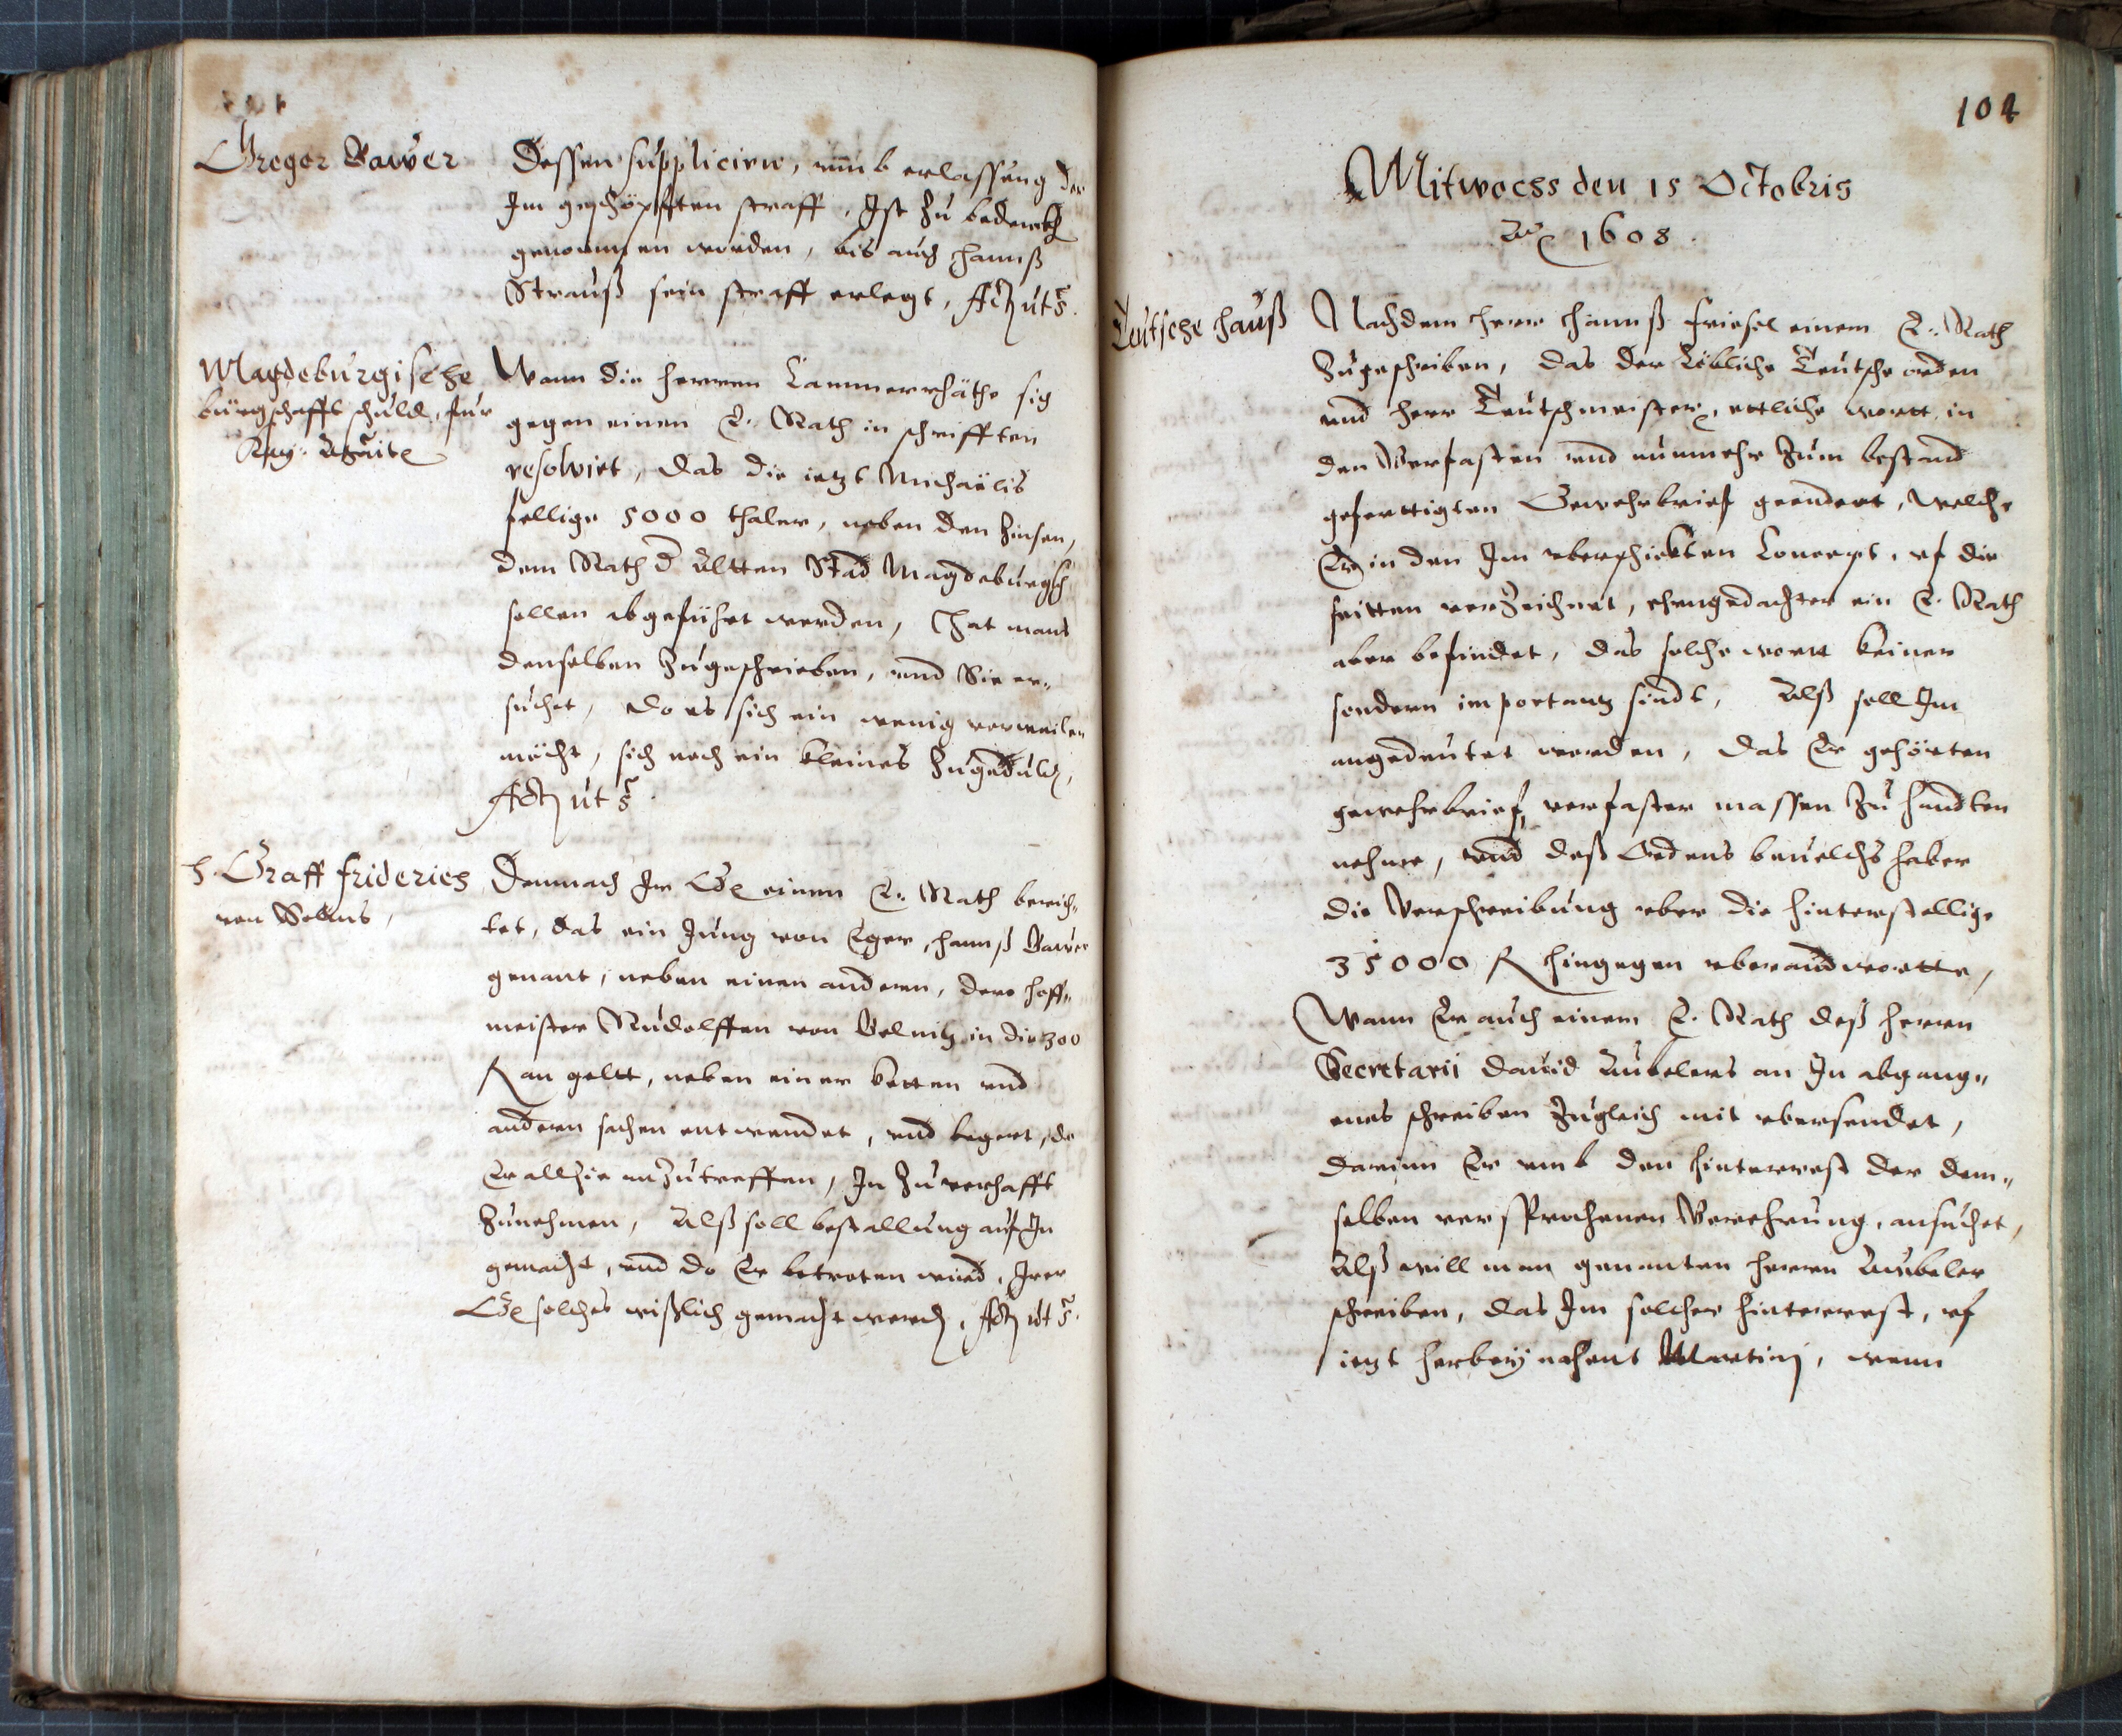 Gregor Bawer
Dessen suppliciren, umb erlassung der
Im geschöpfften straff, Ist zu bedenckh
genommen worden, bis auch Hannß
Strauß sein straff erlegt, Act ut s.
Magdeburgische
bürgschafft schuld, für
Kay: Mait
Wann die herren Cammerräthe sich
gegen einen E. Rath in schrifften
resolvirt, das die ietzt Michaëlis
fellige 5000 thaler, neben den Zinsen,
dem Rath d Altten Stad Magdeburgkh
sollen abgeführt werden, Hat mans
denselben zugeschrieben, und Sie er„
suchet, do es sich ein wenig verweilen
möcht, sich noch ein kleines zugeduld,
Act ut s.
H. Graff Friderichs
von Solms,
Demnach Ir Gn einem E. Rath berich„
tet, das ein Jung von Eger, Hannß Bawer
genant, neben einen anderen, dero Hoff„
meister Rudolffen von in die 300
R an geltt, neben einer ketten und
anderen sachen entwendet, und begert, do
Er allhie anzutreffen, In zuverhafft
zunehmen, Alß soll bestallung auf In
gemacht, und do Er betreten wird, Irer
Gn solches wißlich gemacht werden, Act ut s.
104
Mitwochs den 15 Octobris
Ao 1608.
Teutsche Hauß
Nachdem Herr Hannß Friesel einem E. Rath
zugeschrieben, das der Löbliche Teutsche orden
und Herr Teutschmeister, ettliche wort in
den Verfasten und nunmehr zum bestand
gefertigten Gewehrbrief geendert, welche
Er in den Im uberschickten Concept, uf die
seitten verzeichnet, ehrngedachter ein E. Rath
aber befindet, das solche wort keiner
sondern importantz sindt, Alß soll Im
angedeutet werden, das Er gehörten
gewehrbrief, verfaster massen zu handten
nehme, und deß Ordens bevelchshaber
die Verschreibung uber die hinterstellige
35000 R hingegen uberandwortte,
Wann Er auch einem E. Rath deß herren
Secretarii David an In abgang„
enes schreiben zugleich mit ubersendet,
darinn Er umb den hinterrest der dem„
selben versprochenen Verehrung, ansuchet,
Alß will man genanten herren
schreiben, das Im solcher hinterrest, uf
ietzt herbey nahent Martini, wenn